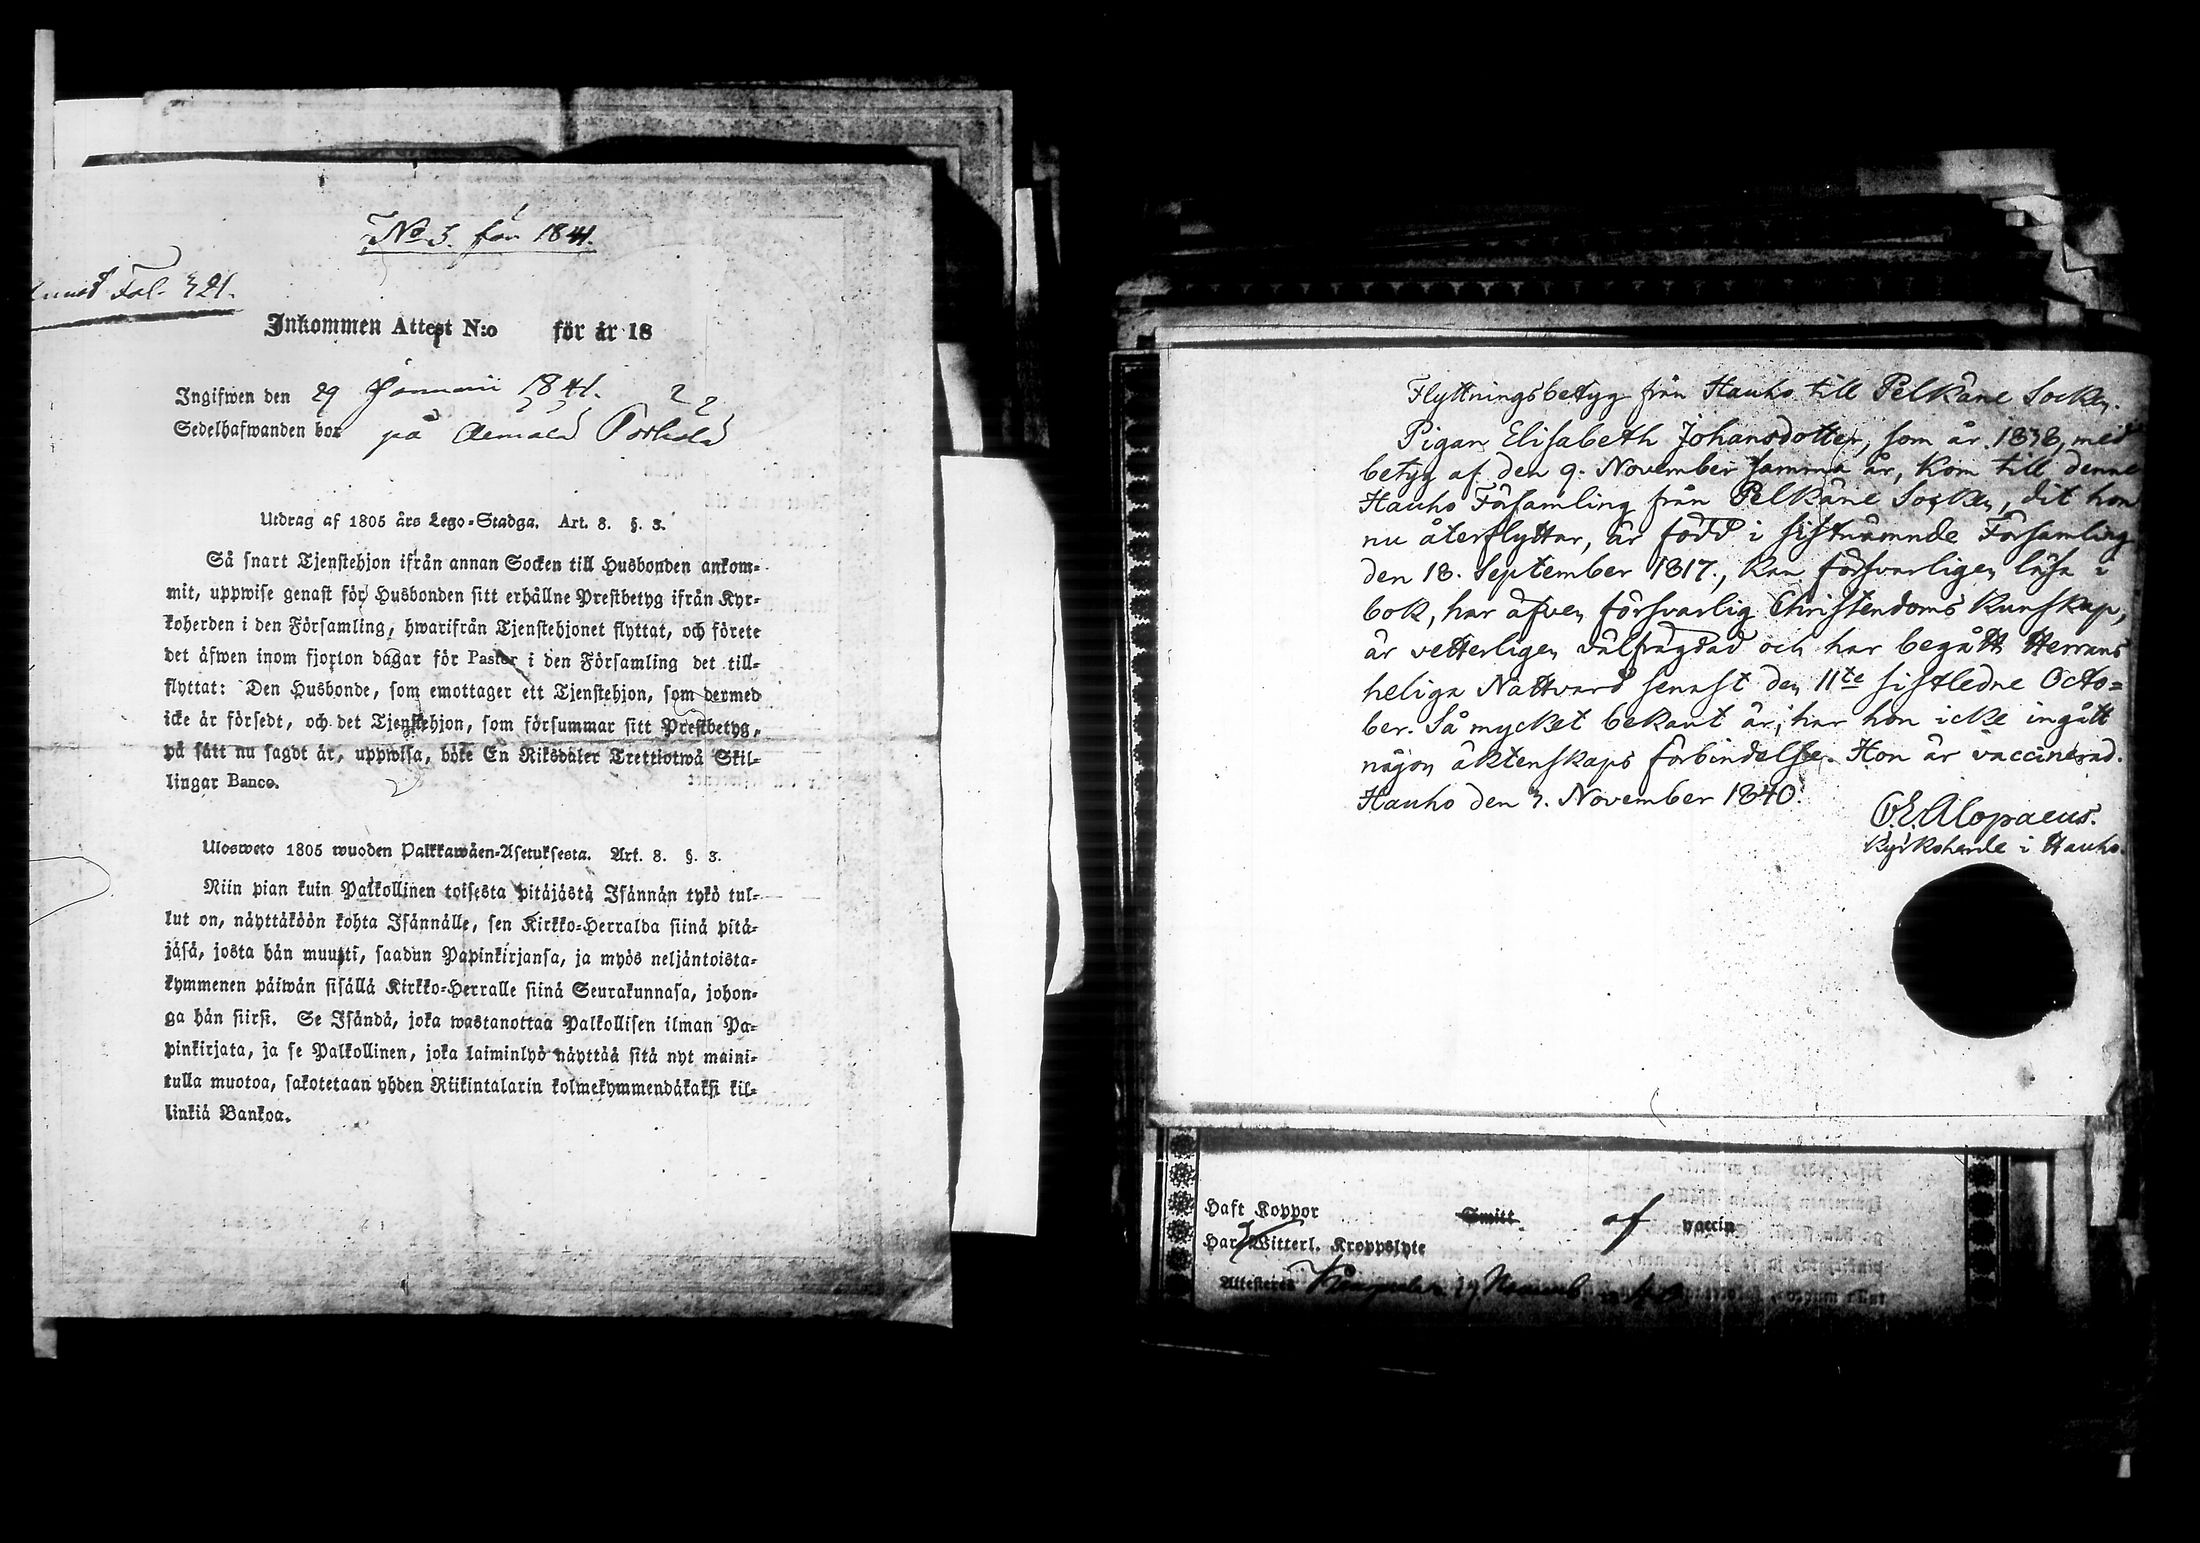 No 3. för 1841.
Fol. 321.
Inkommen Attest N:o för år 18
Ingifwen den 29 Januarii 1841.
Sedelhafwanden bor på
Utdrag af 1805 års Lego-Stadga. Art. 8. §. 3.
Så snart Tjenstehjon ifrån annan Socken till Husbonden ankom-
mit, uppwise genast för Husbonden sitt erhållne Prestbetyg ifrån Kyr-
koherden i den Församling, hwarifrån Tjenstehjonet flyttat, och förete
det äfwen inom fjorton dagar för Pastor i den Församling det till-
flyttat: Den Husbonde, som emottager ett Tjenstehjon, som dermed
icke är försedt, och det Tjenstehjon, som försummar sitt Prestbetyg,
på sätt nu sagdt är, uppwisa, böte En Riksdaler Trettiotwå Skil-
lingar Banco.
Ulosweto 1805 wuoden Palkkawäen-Asetuksesta. Art. 8. §. 3.
Niin pian kuin Palkollinen toisesta pitäjästä Isännän tykö tul-
lut on, näyttäköön kohta Isännälle, sen Kirkko-Herralda siinä pitä-
jäsä, josta hän muutti, saadun Papinkirjansa, ja myös neljäntoista-
kymmenen päiwän sisällä Kirkko-Herralle siinä Seurakunnasa, johon-
ga hän siirsi. Se Isändä, joka wastanottaa Palkollisen ilman Pa-
pinkirjata, ja se Palkollinen, joka laiminlyö näyttää sitä nyt maini-
tulla muotoa, sakotetaan yhden Riikintalarin kolmekymmendäkaksi kil-
linkiä Bankoa.
Flyttningsbetyg från Hauho till Pelkäne Socken.
Pigan Elisabeth Johansdotter, som år 1838, med
betyg af den 9. November samma år, kom till denne
Hauho Församling från Pelkäne Socken, dit hon
nu återflyttar, är född i sistnämnde Församling
den 18. September 1817., kan försvarligen läsa i
bok, har äfven försvarlig Christendoms kunskap,
är vetterligen välfrägdad och har begått Herrans
heliga Nattvard senast den 11te sistledne Octo=
ber. Så mycket bekant är, har hon icke ingått
någon äktenskaps förbindelse. Hon är vaccinerad.
Hauho den 7. November 1840.
C.E. Alopaeus.
Kyrkoherde i Hauho.
Haft Koppor Smitt. af vaccin
Har Witterl. Kroppslyte
Attesteres